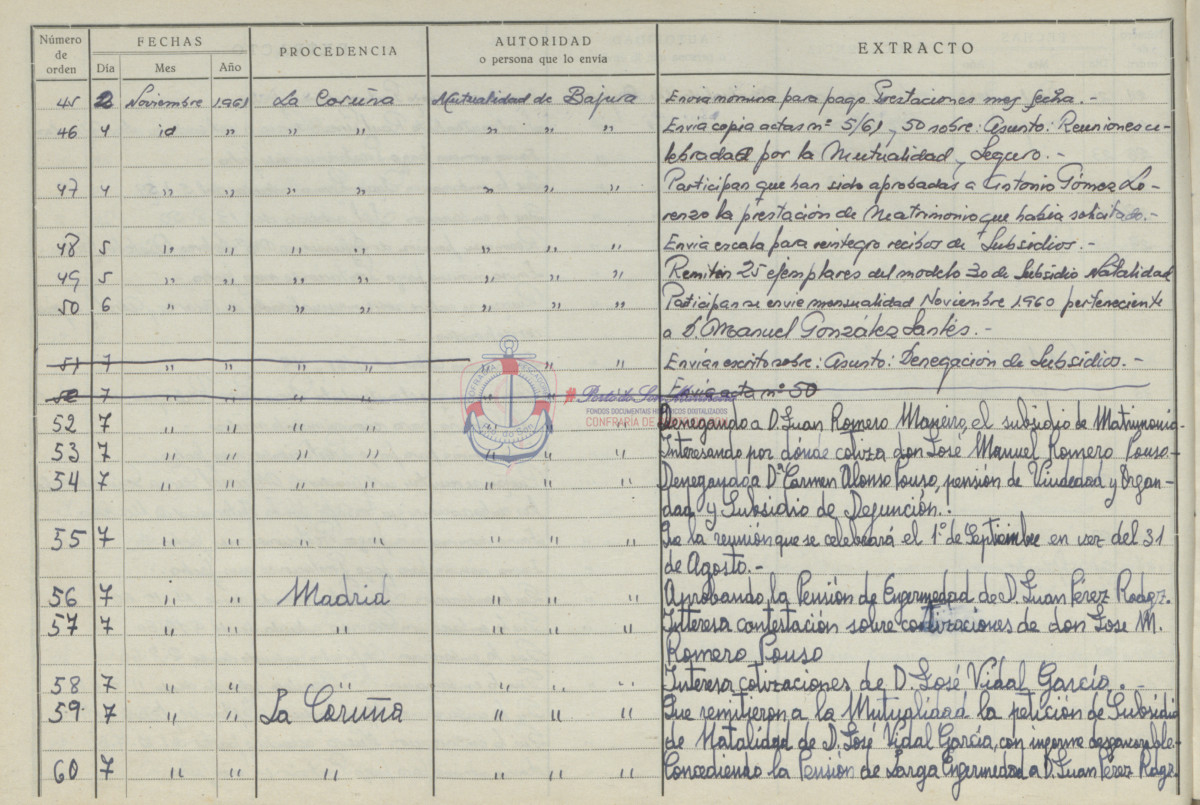 Número de orden FECHAS PROCEDENCIA AUTORIDAD o persona que lo envía EXTRACTO
Día Mes Año
45 2 Noviembre 1961 La Coruña Mutualidad de Bajura Envia nómina para pago Prestaciones mes fecha.-
46 4 id " " " " " " Envia copia actas nº 5/61 y 50 sobre: Asunto: Reuniones ce-
lebradas por la Mutualidad y Seguro.-
47 4 " " " " " " " Participan que han sido aprobadas a Antonio Gómez Lo-
renzo la prestación de Matrimonio que habia solicitado.-
48 5 " " " " " " " Envia escala para reintegro recibos de Subsidios.-
49 5 " " " " " " " Remiten 25 ejemplares del modelo 30 de Subsidio Natalidad
50 6 " " " " " " " Participan se envie mensualidad Noviembre 1960 perteneciente
a D. Manuel González Santés.-
51 7 " " " " " " Envian escrito sobre: Asunto: Denegación de Subsidios.-
52 7 " " " " " " Envia acta nº 50
Porto do Son
FONDOS DOCUMENTAIS HISTÓRICOS DIXITALIZADOS
CONFRARIA DE
52 7 " " " " " " Denegando a D. Juan Romero Maneiro, el subsidio de Matrimonio.
53 7 " " " " " " Interesando por dónde cotiza don José Manuel Romero Pouso.-
54 7 " " " " " " " Denegando a Dª Carmen Alonso Pouso, pensión de Viudedad y Orfan-
dad y Subsidio de Defunción..
55 7 " " " " " " " la reunión que se celebrará el 1º de Septiembre en vez del 31
de Agosto.-
56 7 " " Madrid " " " Aprobando la Pensión de Enfermedad de D. Juan Pérez Rodgz.
57 7 " " " " " " Interesa contestación sobre cotizaciones de don Jose M.
Romero Pouso
58 7 " " " " " " Interesa cotizaciones de D. José Vidal García.-
59 7 " " La Coruña " " " Que remitieron a la Mutualidad la petición de Subsidio
de Natalidad de D. José Vidal García, con informe desfavorable.-
60 7 " " " " " " Concediendo la Pensión de Larga Enfermedad a D. Juan Pérez Rodgz.